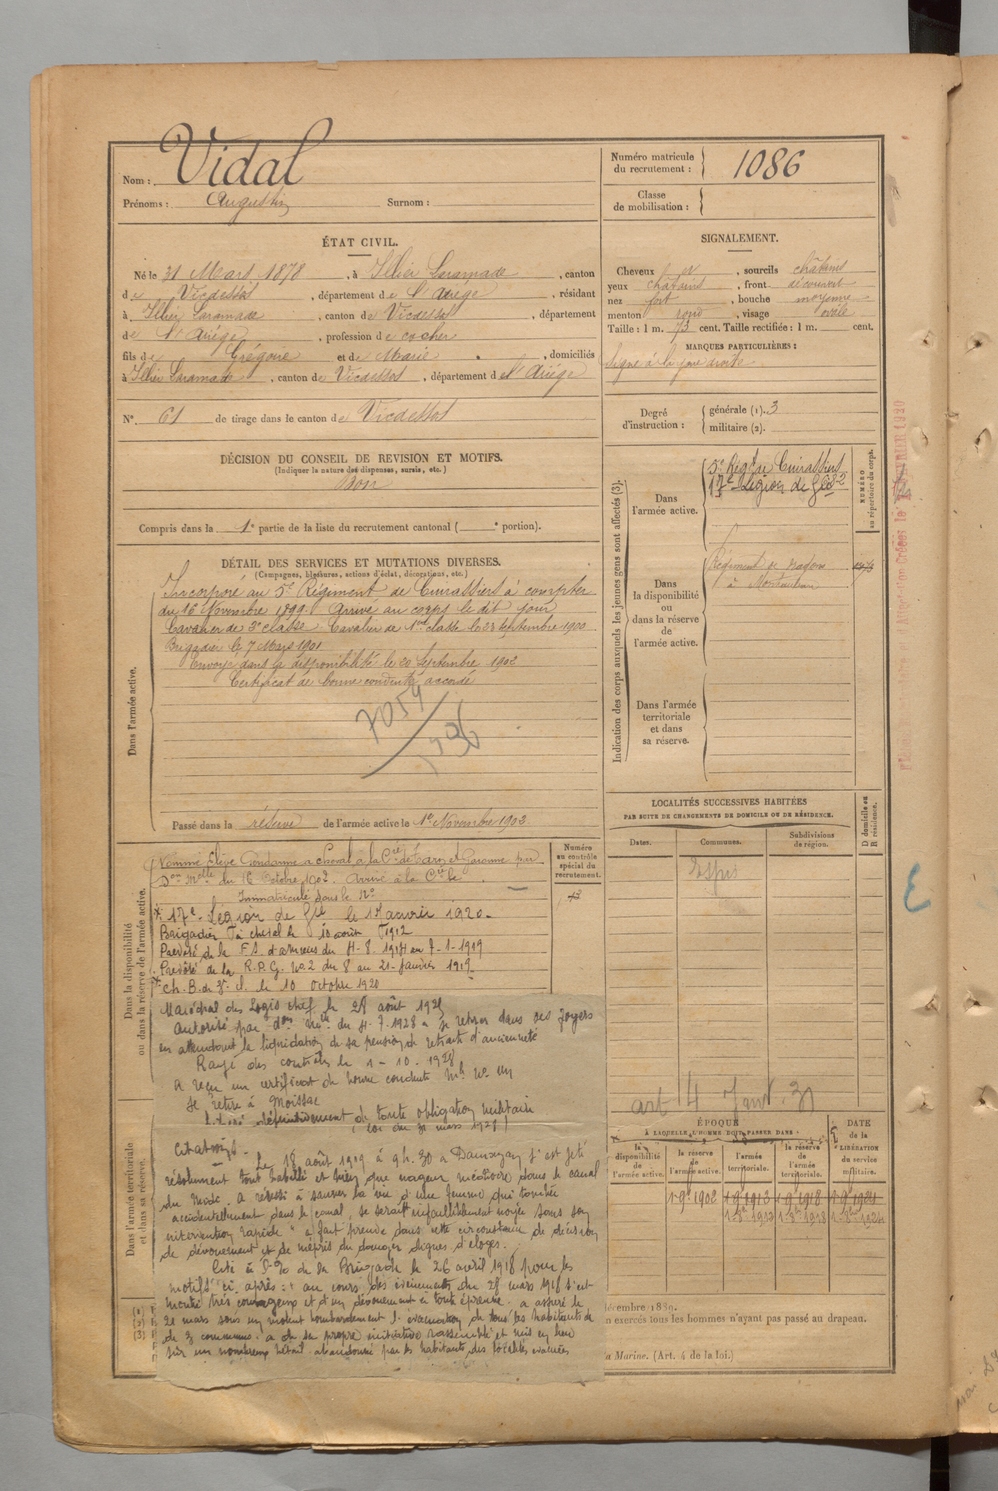 Nom : Vidal
Prénoms : Augustin Surnom :
Numéro matricule du recrutement : 1086
Classe de mobilisation :
ÉTAT CIVIL.
Né le 31 Mars 1878, à Illier Laramade, canton
de Vicdessos, département de l'Ariège, résidant
à Illier Laramade, canton de Vicdessos, département
de l'Ariège, profession de cocher
fils de Grégoire et de Marie, domiciliés
à Illier Laramade, canton de Vicdessos, département de l'Ariège
N° 61 de tirage dans le canton de Vicdessos
SIGNALEMENT.
Cheveux , sourcils châtains
yeux châtains, front découvert
nez fort, bouche moyenne
menton rond, visage ovale
Taille : 1 m. 73 cent. Taille rectifiée : 1 m. cent.
MARQUES PARTICULIÈRES :
signe à la joue droite
Degré d'instruction :
générale (1). 3
militaire (2).
DÉCISION DU CONSEIL DE REVISION ET MOTIFS.
(Indiquer la nature des dispenses, sursis, etc.)
Bon
Compris dans la 1e partie de la liste du recrutement cantonal ( e portion).
DÉTAIL DES SERVICES ET MUTATIONS DIVERSES.
(Campagnes, blessures, actions d'éclat, décorations, etc.)
Dans l'armée active.
Incorporé au 5e Régiment de Cuirassiers à compter
du 16 Novembre 1899. Arrivé au corps le dit jour
Cavalier de 2e classe. Cavalier de 1re classe le 23 septembre 1900
Brigadier le 7 Mars 1901
Envoyé dans la disponibilité le 20 Septembre 1902
Certificat de bonne conduite accordé
7054
Passé dans la réserve de l'armée active le 1er Novembre 1902.
Indication des corps auxquels les jeunes gens sont affectés (3).
NUMÉRO au répertoire du corps.
Dans l'armée active.
5e Rég de Cuirassiers
17e Légion de Gie
Dans la disponibilité ou dans la réserve de l'armée active.
Régiment de dragons
à Montauban
Dans l'armée territoriale et dans sa réserve.
LOCALITÉS SUCCESSIVES HABITÉES
PAR SUITE DE CHANGEMENTS DE DOMICILE OU DE RÉSIDENCE.
Dates. Communes. Subdivisions de région. D domicile ou R résidence.
Dans la disponibilité ou dans la réserve de l'armée active.
Numéro au contrôle spécial du recrutement.
Nommé Élève Gendarme à cheval à la Cie de Tarn et Garonne par
Don Melle du 16 Octobre 1902 arrivé à la Cie le
Immatriculé sous le No
17e Légion de Gie le 1er avril 1920
Brigadier à cheval le 10 août 1912
Prévôté de la F.S. d'Amiens du 4-8-1914 au 7-1-1919
Prévôté de la R.P.G. no 2 du 8 au 21 janvier 1919
Ch. B. de 3e cl. le 10 octobre 1920
Maréchal des logis chef le 28 août 1921
Autorisé par don mlle du 4-7-1928 à se retirer dans ses foyers
en attendant la liquidation de sa pension de retraite d'ancienneté
Rayé des contrôles le 1-10-1928
A reçu un certificat de bonne conduite
Se retire à Moissac
définitivement de toute obligation militaire
(Loi du 31 mars 1928)
Dans l'armée territoriale et dans sa réserve.
Citations.
Le 18 août 1919 à 9h.30 à s'est jeté
résolument tout habillé et bien que nageur médiocre dans le canal
du Midi. A réussi à sauver la vie d'une femme qui tombée
accidentellement dans le canal, se serait infailliblement noyée sans son
intervention rapide a fait preuve dans cette circonstance de décision
de dévouement et de mépris du danger dignes d'éloges.
Cité à l'O. de la Brigade le 26 avril 1918 pour les
motifs ci après : au cours des événements du 27 mars 1918 s'est
montré très courageux et d'un dévouement à toute épreuve. a assuré le
21 mars sous un violent bombardement l'évacuation de tous les habitants de
de 3 communes. a de sa propre initiative rassemblé et mis en lieu
sûr un nombreux bétail abandonné par les habitants des localités évacuées
art 4
ÉPOQUE
À LAQUELLE L'HOMME DOIT PASSER DANS :
la disponibilité de l'armée active. la réserve de l'armée active. l'armée territoriale. la réserve de l'armée territoriale.
DATE de la LIBÉRATION du service militaire.
1-9bre 1902 1-9 1913 1-9 1918 1-9 1924
décembre 1889.
n exercés tous les hommes n'ayant pas passé au drapeau.
a Marine. (Art. 4 de la loi.)